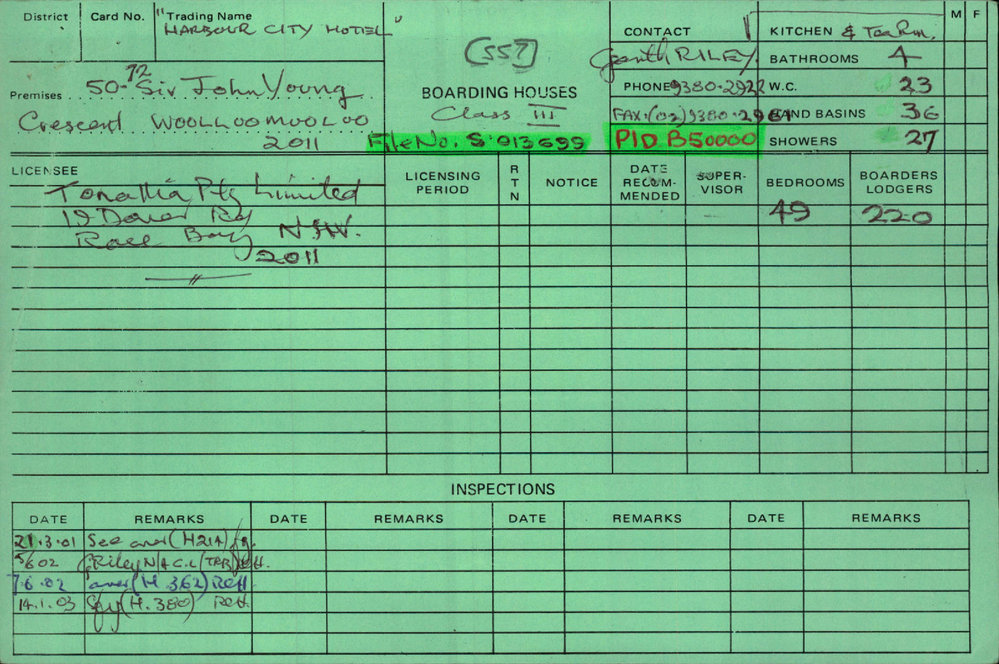 District
Card No.
"Trading Name
HARBOUR CITY HOTEL"
[557]
CONTACT
Garth RILEY
KITCHEN & Tea Rm.
M F
Premises 50-72 Sir John Young
Crescent WOOLLOOMOOLOO
2011
BOARDING HOUSES
Class III
File No. S.013699
PHONE 9380-2922
FAX.(02)9380-2901
PID B50000
BATHROOMS 4
W.C. 23
HAND BASINS 36
SHOWERS 27
LICENSEE
LICENSING PERIOD
RTN
NOTICE
DATE RECOM-MENDED
SUPER-VISOR
BEDROOMS
BOARDERS LODGERS
Pty Limited
19 Dover Rd
Rose Bay N.S.W.
2011
49
220
INSPECTIONS
DATE REMARKS DATE REMARKS DATE REMARKS DATE REMARKS
21.3.01 See over (H214)
5/6/02 Riley N/A C.L (TRR)
7.6.02 over (H.362)
14.1.03 (H.380)